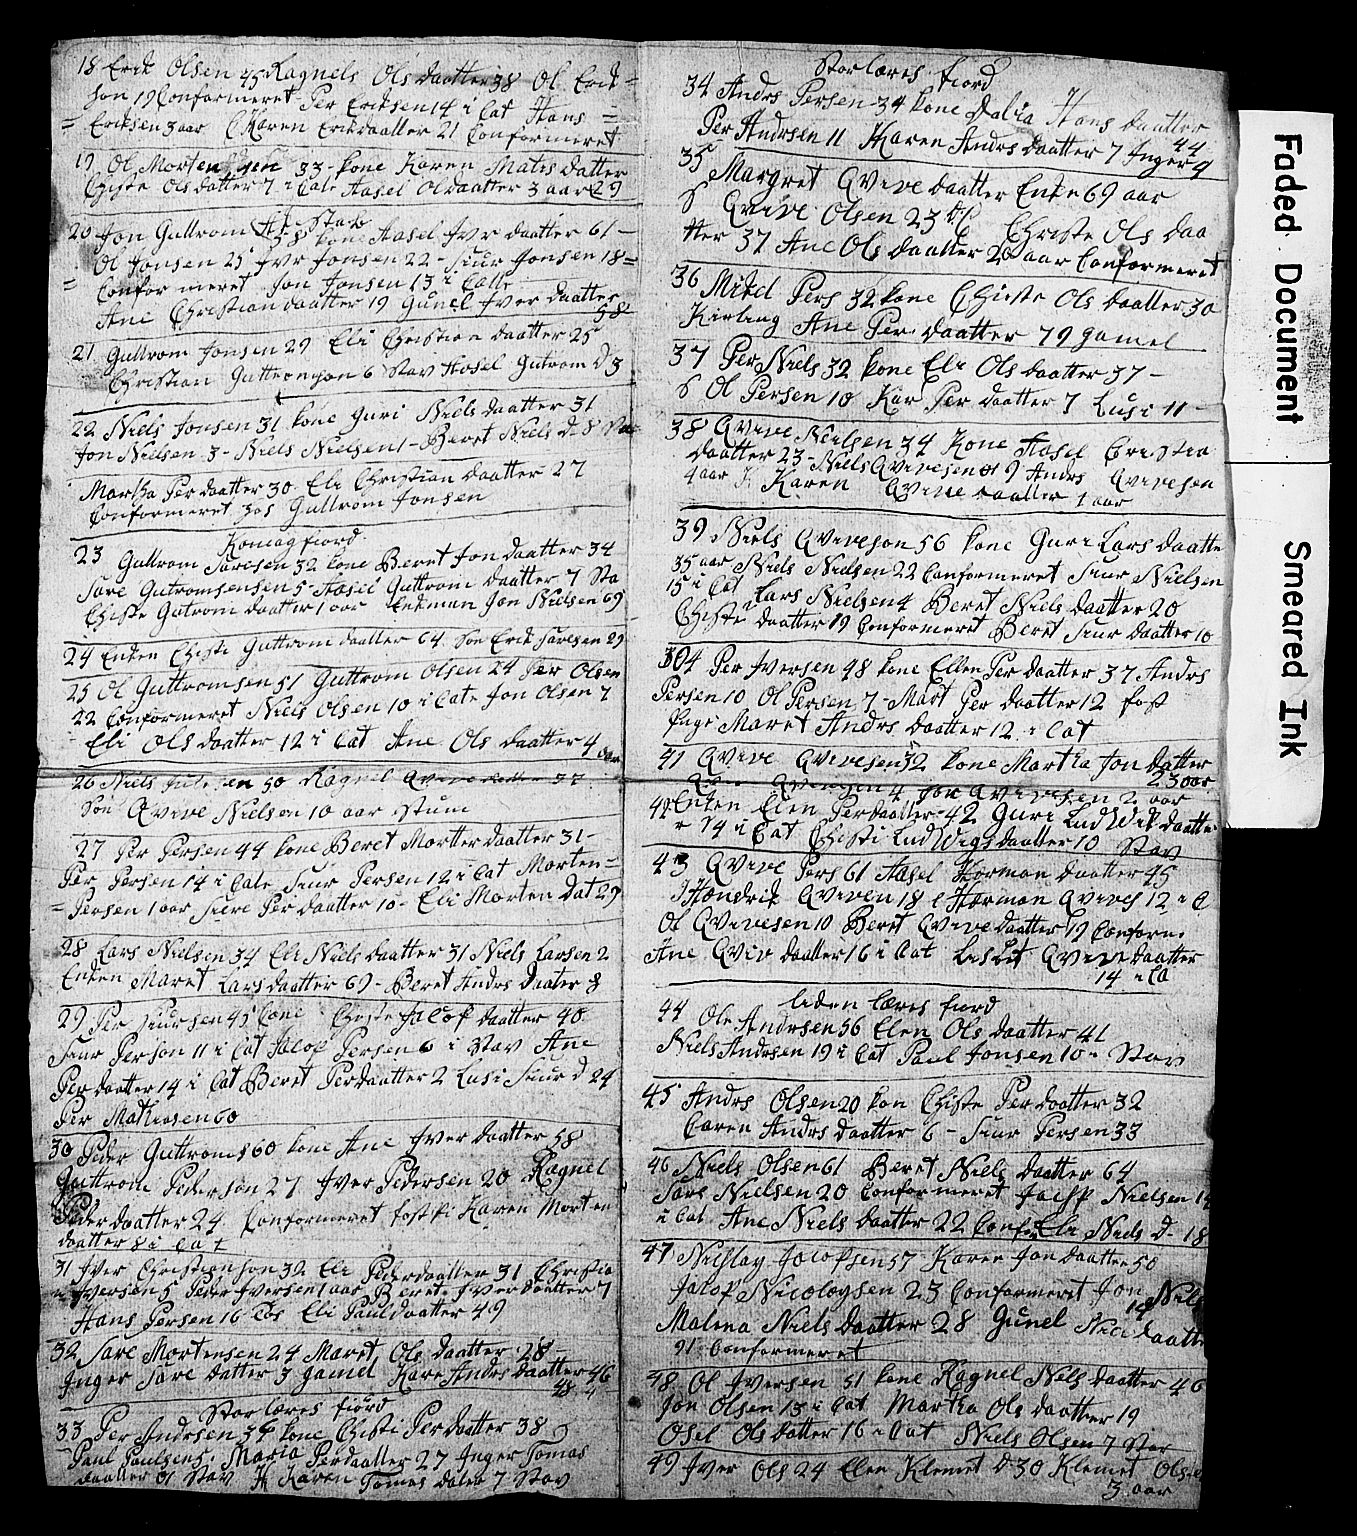 18 Erik Olsen 45 Ragnels Ols daatter 38 Ol Erik=
son 19 Conformeret Per Eriksen 14 i Cat Hans =
= Eriksen 3 aar Karen Erikdaatter 21 Conformeret
19 Ol Morten sen 33 kone Karen Matis datter
Christe Ols datter 7 i Cate Aasel Oldaatter 3 aar 29
20 Jon Guttrom 58 kone Aasel Jvr daatter 61 –
Ol Jonsen 25 Jvr Jonsen 22 – Siur Jonsen 18 =
= Confor meret Jon Jonsen 13 i Catte
Ane Christian daatter 19 Gunel Jver daatter
58
21 Guttrom Jonsen 29 Eli Christian daatter 25
Christian Guttromson 6 Stav Aasel Gutrom D 3
22 Niels Jonsen 31 kone Guri Niels daatter 31
Jon Nielsen 3 – Niels Nielsen 1 – Beret Niels d 8
Martha Per daatter 30 Eli Christian daatter 27
Conformeret hos Guttrom Jonsen
Komagfiord
23 Guttrom Saresen 32 kone Beret Jon daatter 34
Sare Gutromsensen 5 – Aasel Guttrom daatter 7 Sta
Christe Gutrom daatter 1 aar Enkman Jon Nielsen 69
24 Enken Christi Guttrom daatter 64 Søn Erik Saresen 29
25 Ol Guttromsen 51 Guttrom Olsen 24 Per Olsen
22 Conformeret Niels Olsen 10 i Cate Jon Olsen 7
Eli Ols daatter 12 i Cat Ane Ols daatter 4 aar
26 Niels 50 Ragnel 37
Søn Qvive Nielsen 10 aar stum
27 Per Persen 44 kone Beret Morten daatter 31 –
Per Persen 14 i Cate Siur Persen 12 i Cat Morten =
= Persen 1 aar Siere Per daatter 10 – Eli Morten dat 29
28 Lars Nielsen 34 Eli Niels daatter 31 Niels Larsen 2
Enken Maret Lars daatter 69 – Beret Andrs Daater 8
29 Per Siursen 45 kone Christe Jacop daatter 40
Siur Person 11 i Cat Jacop Persen 6 i Stav Ane
Per daatter 14 i Cat Beret Perdaatter 2 Lusi Siur d 24
Per Mathiasen 60
30 Peder Guttroms 60 kone Ane Jver daatter 58
Guttrom Pederson 27 Jver Pedersen 20 Ragnel
Peder daatter 24 Conformeret Karen Morten
daatter 8 i Cat
31 Jver Christianson 32 Eli Pederdaatter 31 Christia
n Jversen 5 Peder Jversen 1 aar Beret Jver daatter 7
Hans Persen 16 Los Eli Pauldaatter 49
32 Sare Mortensen 24 Maret Ols daatter 28 –
Inger Sare datter 3 gamel Kare Andrs daatter 46
Storlæres fiord
33 Per Andrsen 36 kone Christi Per daatter 38
Paul Paulsen 5 Maria Perdaatter 27 Inger Tomas
daatter Stav Karen Tomas dater 7 Stav
Storlæres fiord
34 Andrs Persen 34 kone Dalia Hans daatter
44
Per Andrsen 11 Karen Andrs daatter 7 Inger 9
35 Margret Qvive daatter Enke 69 aar
S Qvive Olsen 23 Christe Ols daa
tter 37 Ane Ols daatter 20 aar Conformeret
36 Mikel Pers 32 kone Christe Ols daatter 30
Kierling Ane Per daatter 79 gamel
37 Per Niels 32 kone Eli Ols daatter 37 –
S Ol Persen 10 Kar Per daatter 7 Lusi 11 –
38 Qvive Neilsen 34 kone Aasel Cristia
daatter 23 – Niels Qvivesen 9 Andrs Qviveson
4 aar Karen Qvive daatter 1 aar
39 Niels Qviveson 56 kone Guri Lars daatte
35 aar Niels Nielsen 22 Conformeret Siur Nielsen
15 i Cat Lars Nielsen 4 Beret Niels daatter 20
Christe daatter 19 Conformeret Beret Siur daatter 10
Per Jversen 48 kone Ellen Per daatter 37 Andrs
Persen 10 Ol Persen 7 – Mart Per daatter 12 fost
Pige Maret Andrs daatter 12 i Cat
41 Qvive Qvivesen 32 kone Martha Jon datter
23 aar
Qvivesen 4 Per Qvivesen 2 aar
42 Enken Elen Per daatter 42 Guri Ludwik daatte
r 14 i Cat Christi Ludwigs daatter 10 Stav
43 Qvive Pers 61 Aasel Herman daatter 45
Hendrik Qviven 18 Herman Qvives 12 i C
Ol Qvivesen 10 Beret Qvivedaatter 19 Conform
Ane Qviv daatter 16 i Cat Lisbet Qvivedaatter
14 i Ca
Liden læres fiord
44 Ole Andrsen 56 Elen Ols daatter 41
Niels Andrsen 19 i Cat Paul Jonsen 10 – Stav
45 Andrs Olsen 20 kon Christe Per daatter 32
Caren Andrs daatter 6 – Siur Persen 33
46 Niels Olsen 61 Beret Niels daatter 64
Sars Nielsen 20 Conformeret Nielsen 14
i Cat Ane Niels daatter 22 Eli Niels D – 18
47 Nicolay Jacopsen 57 Karen Jon daatter 50
Jacop Nicolaysen 23 Conformeret Jon Niels
14
Malena Niels daatter 28 Gunel daatte
21 Conformeret
48 Ol Jversen 51 kone Ragnel Niels daatter 46
Jon Olsen 13 i Cat Martha Ols daatter 19
Osel Ols datter 16 i Cat Niels Olsen 7 Star
49 Jver Ols 24 Elen Klemet D 30 Klemet Olsen
3 aar
Faded Document
Smeared Ink